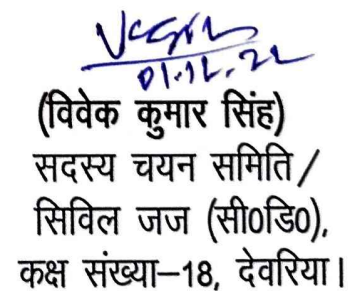 01.12.22
(विवेक कुमार सिंह)
सदस्य चयन समिति/
सिविल जज (सी0डि0),
कक्ष संख्या–18, देवरिया।